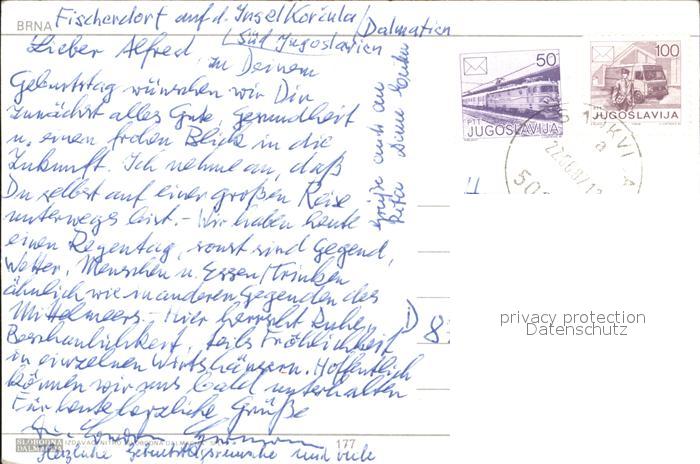 BRNA
Fischerdorf auf d. Insel Korčula/Dalmatien
(Süd Jugoslavien
Lieber Alfred, zu Deinem
Geburtstag wünschen wir Dir
zunächst alles Gute, Gesundheit
u. einen frohen Blick in die
Zukunft. Ich nehme an, daß
Du selbst auf einer großen Reise
unterwegs bist. - Wir haben heute
einen Regentag, sonst sind Gegend,
Wetter, Menschen u. Essen/Trinken
ähnlich wie in anderen Gegenden des
Mittelmeers. - Hier herrscht Ruhe,
Beschaulichkeit, teils Fröhlichkeit
in einzelnen Wirtshäusern. Hoffentlich
können wir uns bald unterhalten
Für heute herzliche Grüße
Herzliche Geburtstagswünsche und viele
Grüße auch an
Rita
50
PTT
JUGOSLAVIJA
100
JUGOSLAVIJA
a
D 8
privacy protection
Datenschutz
SLOBODNA
DALMACIJA
177